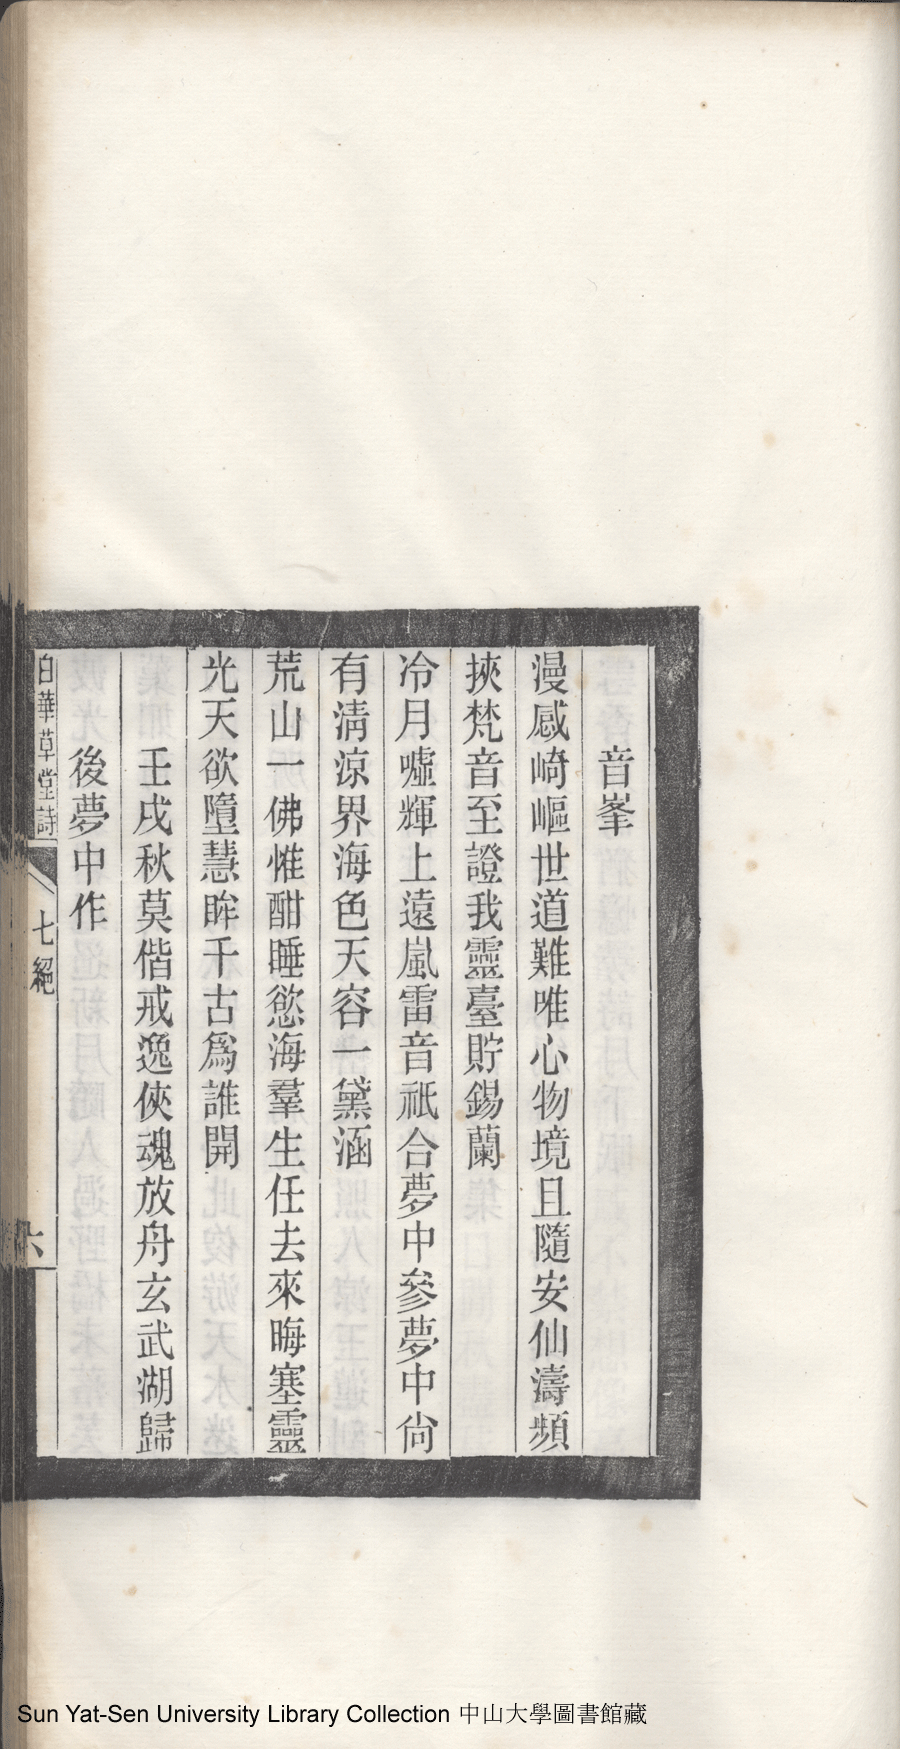 音峯
漫感崎嶇世道難唯心物境且隨安仙濤頻
挾梵音至證我靈臺貯錫蘭
冷月噓輝上遠嵐雷音祇合夢中參夢中尙
有清涼界海色天容一黛涵
荒山一佛惟酣睡慾海羣生任去來晦塞靈
光天欲墮慧眸千古爲誰開
壬戌秋莫偕戒逸俠魂放舟玄武湖歸
後夢中作
白華草堂詩
七絕
六
Sun Yat-Sen University Library Collection 中山大學圖書館藏